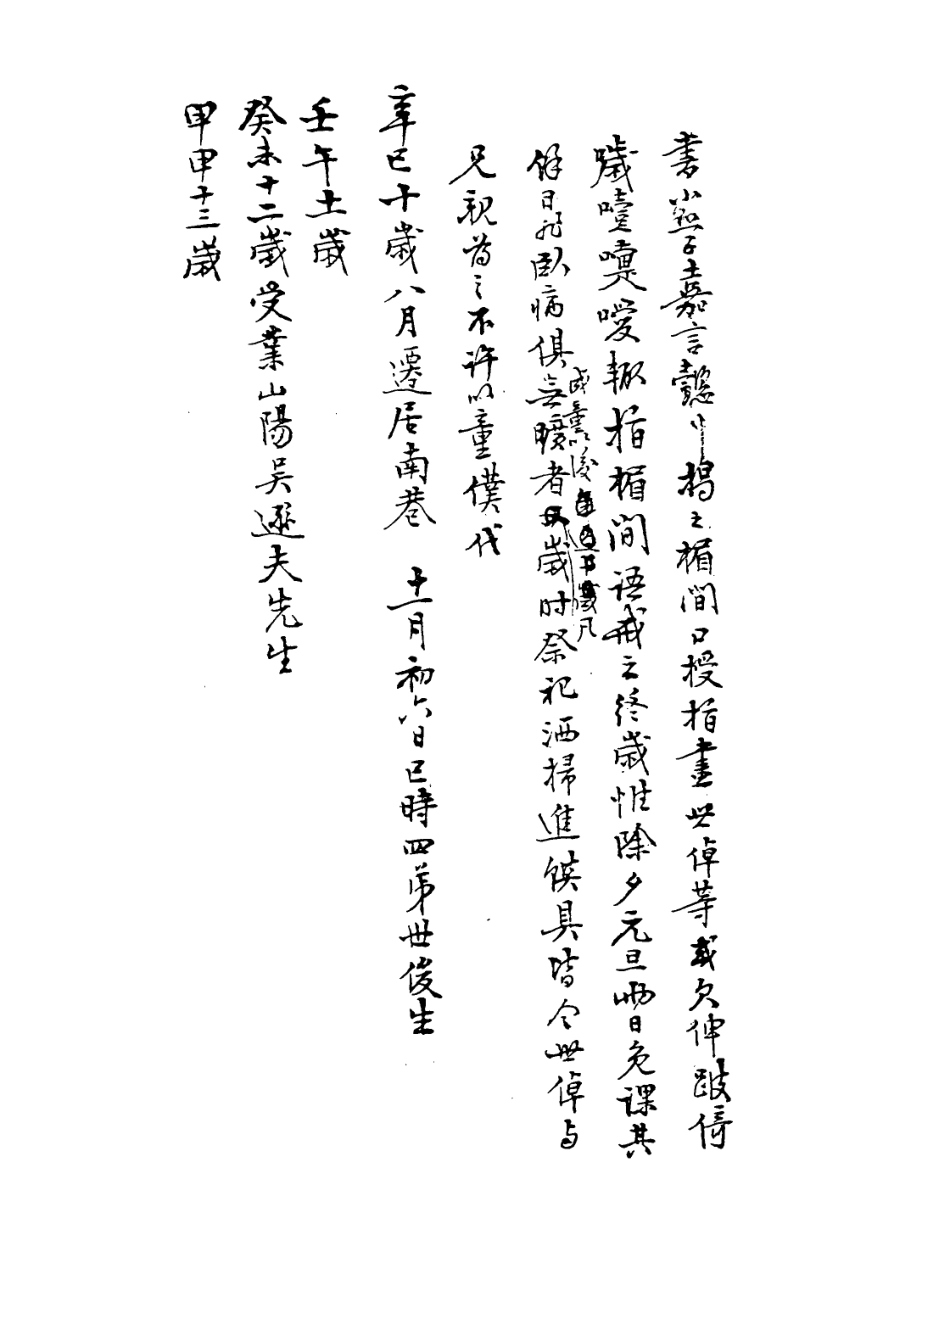 書小學嘉言懿行揭之楣間口授指畫世倬等或欠伸跛倚
噦嚏嚔噯輙指楣間語戒之終歲惟除夕元旦兩日免課其
餘日非臥病俱無曠者又歲時祭祀洒掃進饌具皆令世倬与
成童以後
凡
兄親為之不許以童僕代
辛巳十歲八月遷居南巷 十一月初六日巳時四弟世俊生
壬午十一歲
癸未十二歲受業山陽吳遜夫先生
甲申十三歲